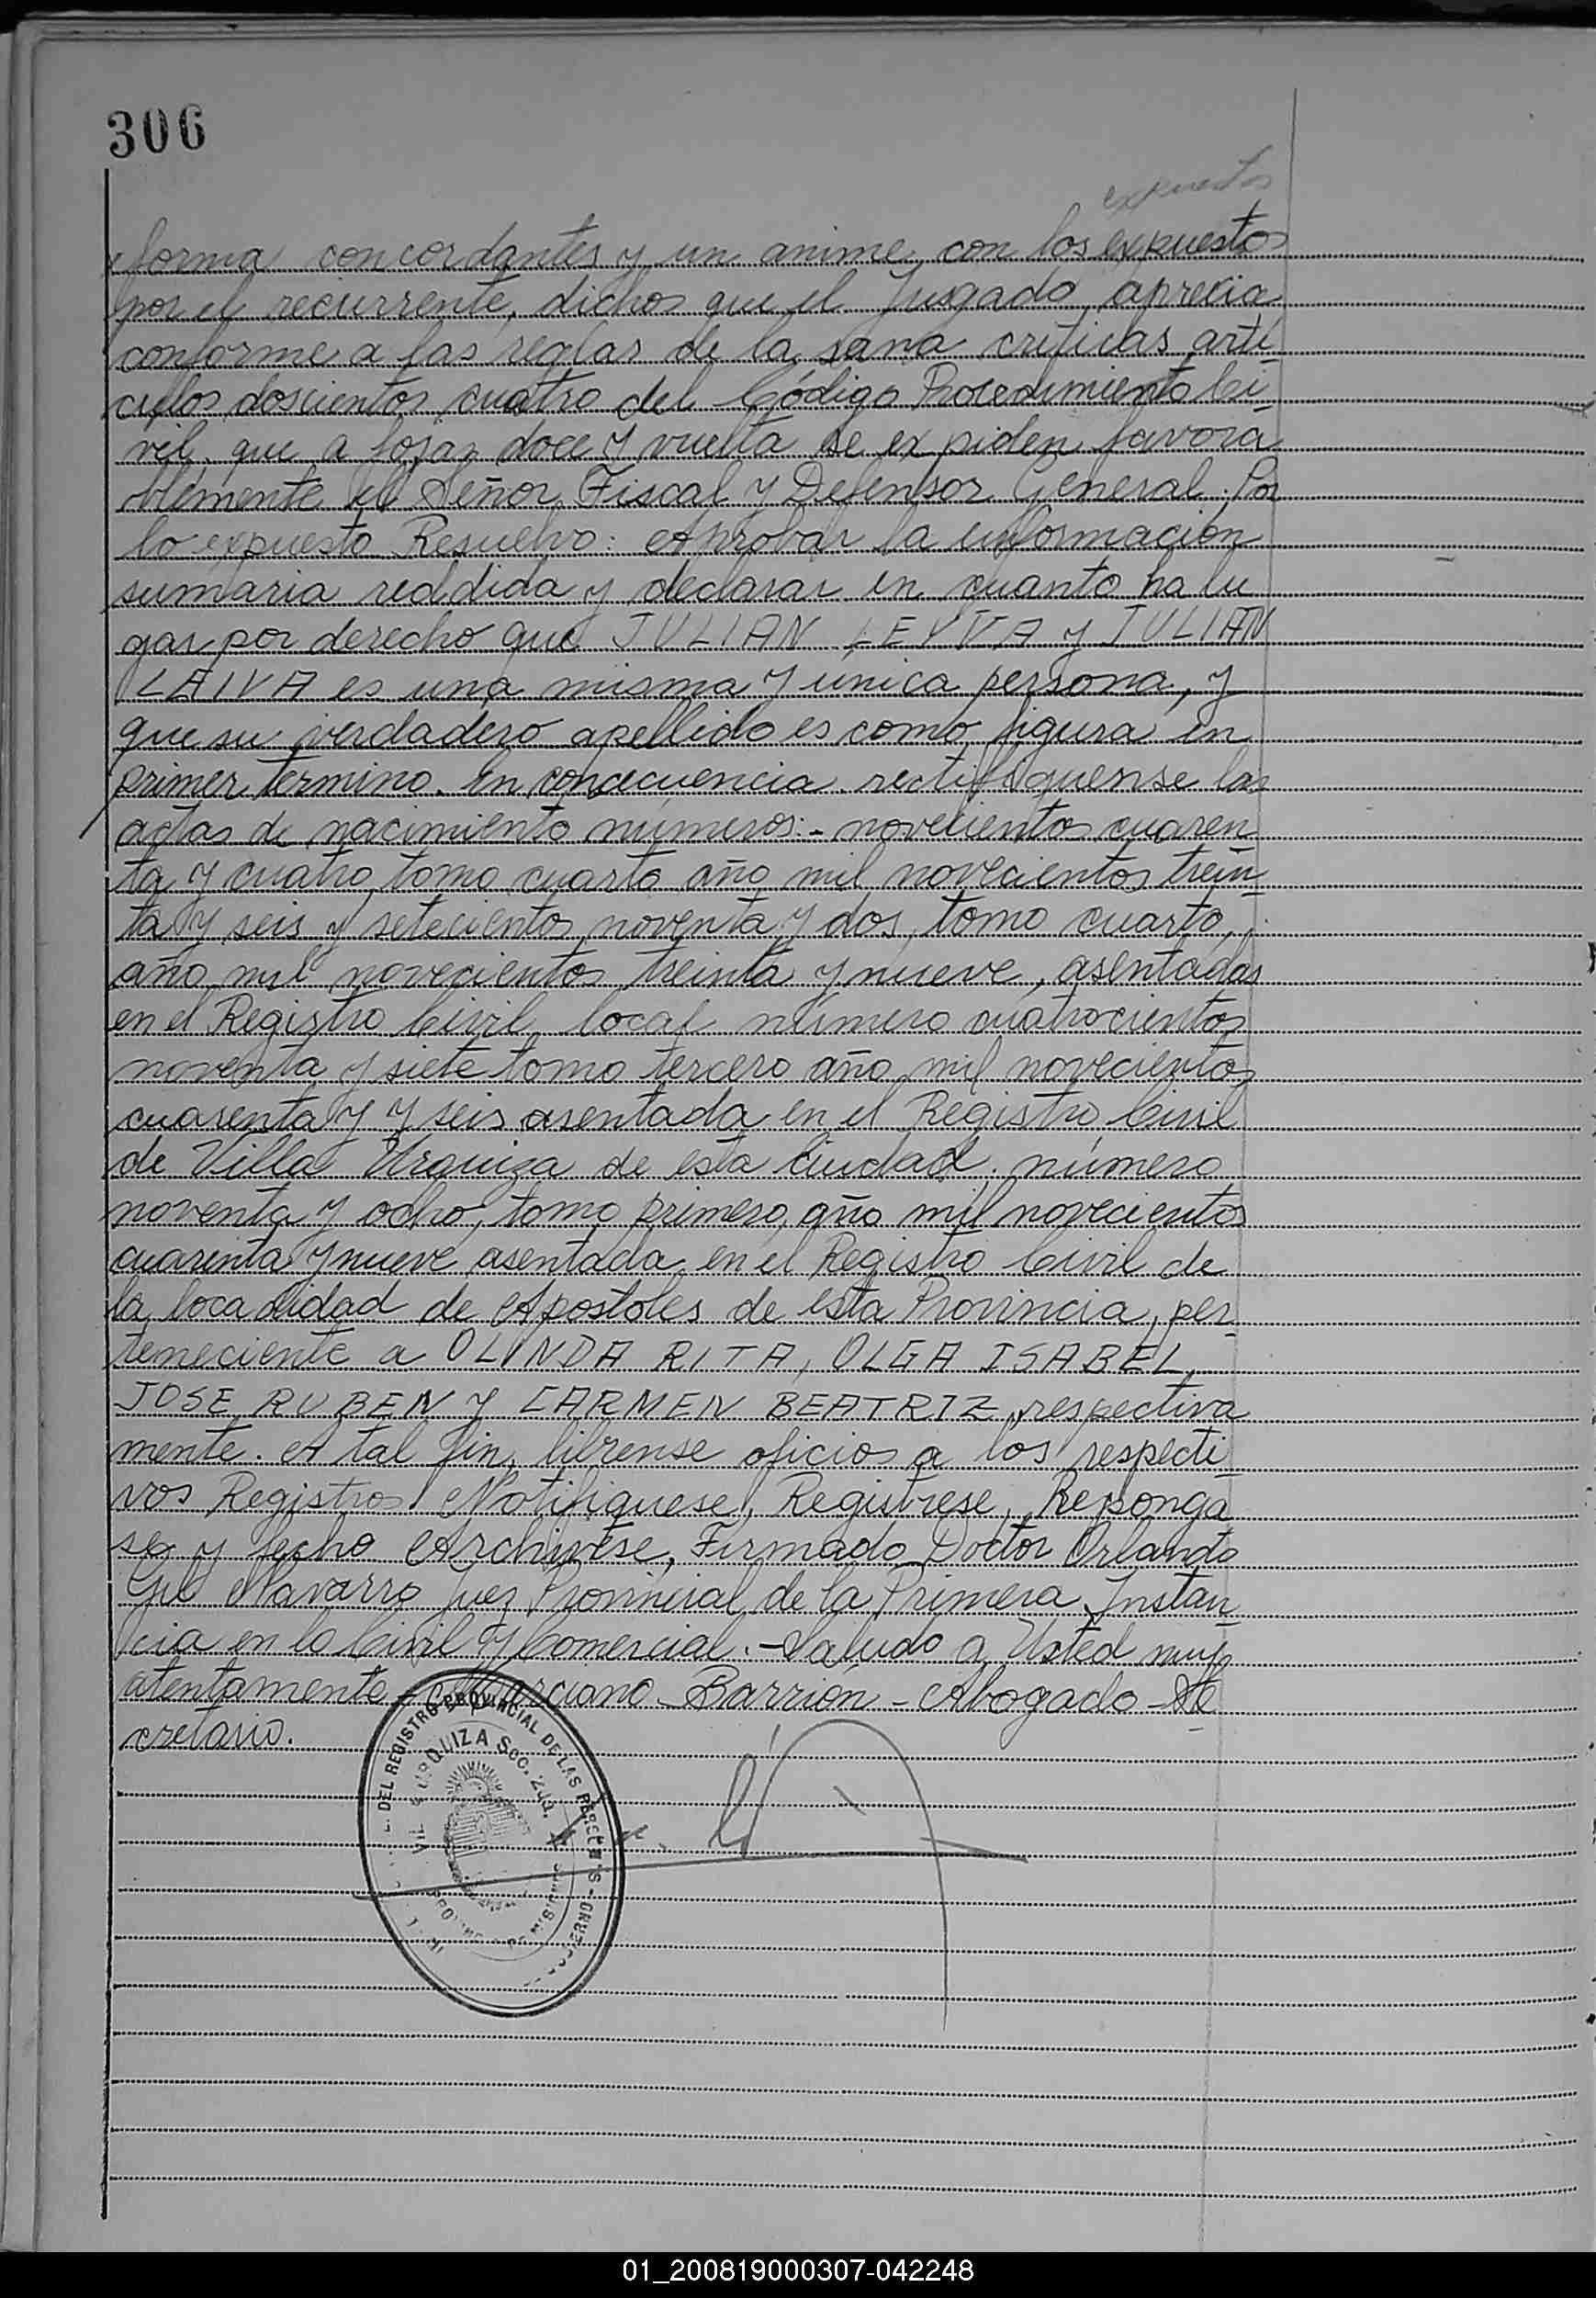 306
expuestos
forma concordantes y un anime con los expuestos
por el recurrente, dichos que el Jusgado aprecia
conforme a las reglas de la sana criticas arti-
culos doscientos cuatro del Código Procedimiento Ci-
vil, que a fojas doce y vuelta se ex piden favora
blemente el Señor Fiscal y Defensor General. Por
lo expuesto Resuelvo: Aprobar la información
sumaria reddida y declarar en cuanto ha lu
gar por derecho que JULIAN LEYVA y JULIAN
LAIVA es una misma y unica persona, y
que su verdadero apellido es como figura en
primer termino. En concecuencia rectifiquense las
actas de nacimiento números:- novecientos cuaren
ta y cuatro, tomo cuarto año mil novecientos trein-
ta y seis y setecientos noventa y dos, tomo cuarto,
año mil novecientos treinta y nueve, asentadas
en el Registro Civil local número cuatrocientos
noventa y siete tomo tercero año mil novecientos
cuarenta y y seis asentada en el Registro Civil
de Villa Urquiza de esta Ciudad, número
noventa y ocho, tomo primero, año mil novecientos
cuarenta y nueve asentada en el Registro Civil de
la loca lidad de Apostoles de esta Provincia, per-
teneciente a OLINDA RITA, OLGA ISABEL,
JOSE RUBEN Y CARMEN BEATRIZ, respectiva
mente. A tal fin, librense oficios a los respecti-
vos Registros Notifiquese, Registrese, Reponga
se y fecho Archivese, Firmado Doctor Orlando
Gil Navarro Juez Provincial de la Primera Instan-
cia en lo Civil y Comercial.- Saludo a Usted muy
atentamente - Marciano - Barrion - Abogado - Se-
cretario.
DEL REGISTRO PROVINCIAL DE LAS PERSONAS
URQUIZA Sec. 2da.
01_200819000307-042248